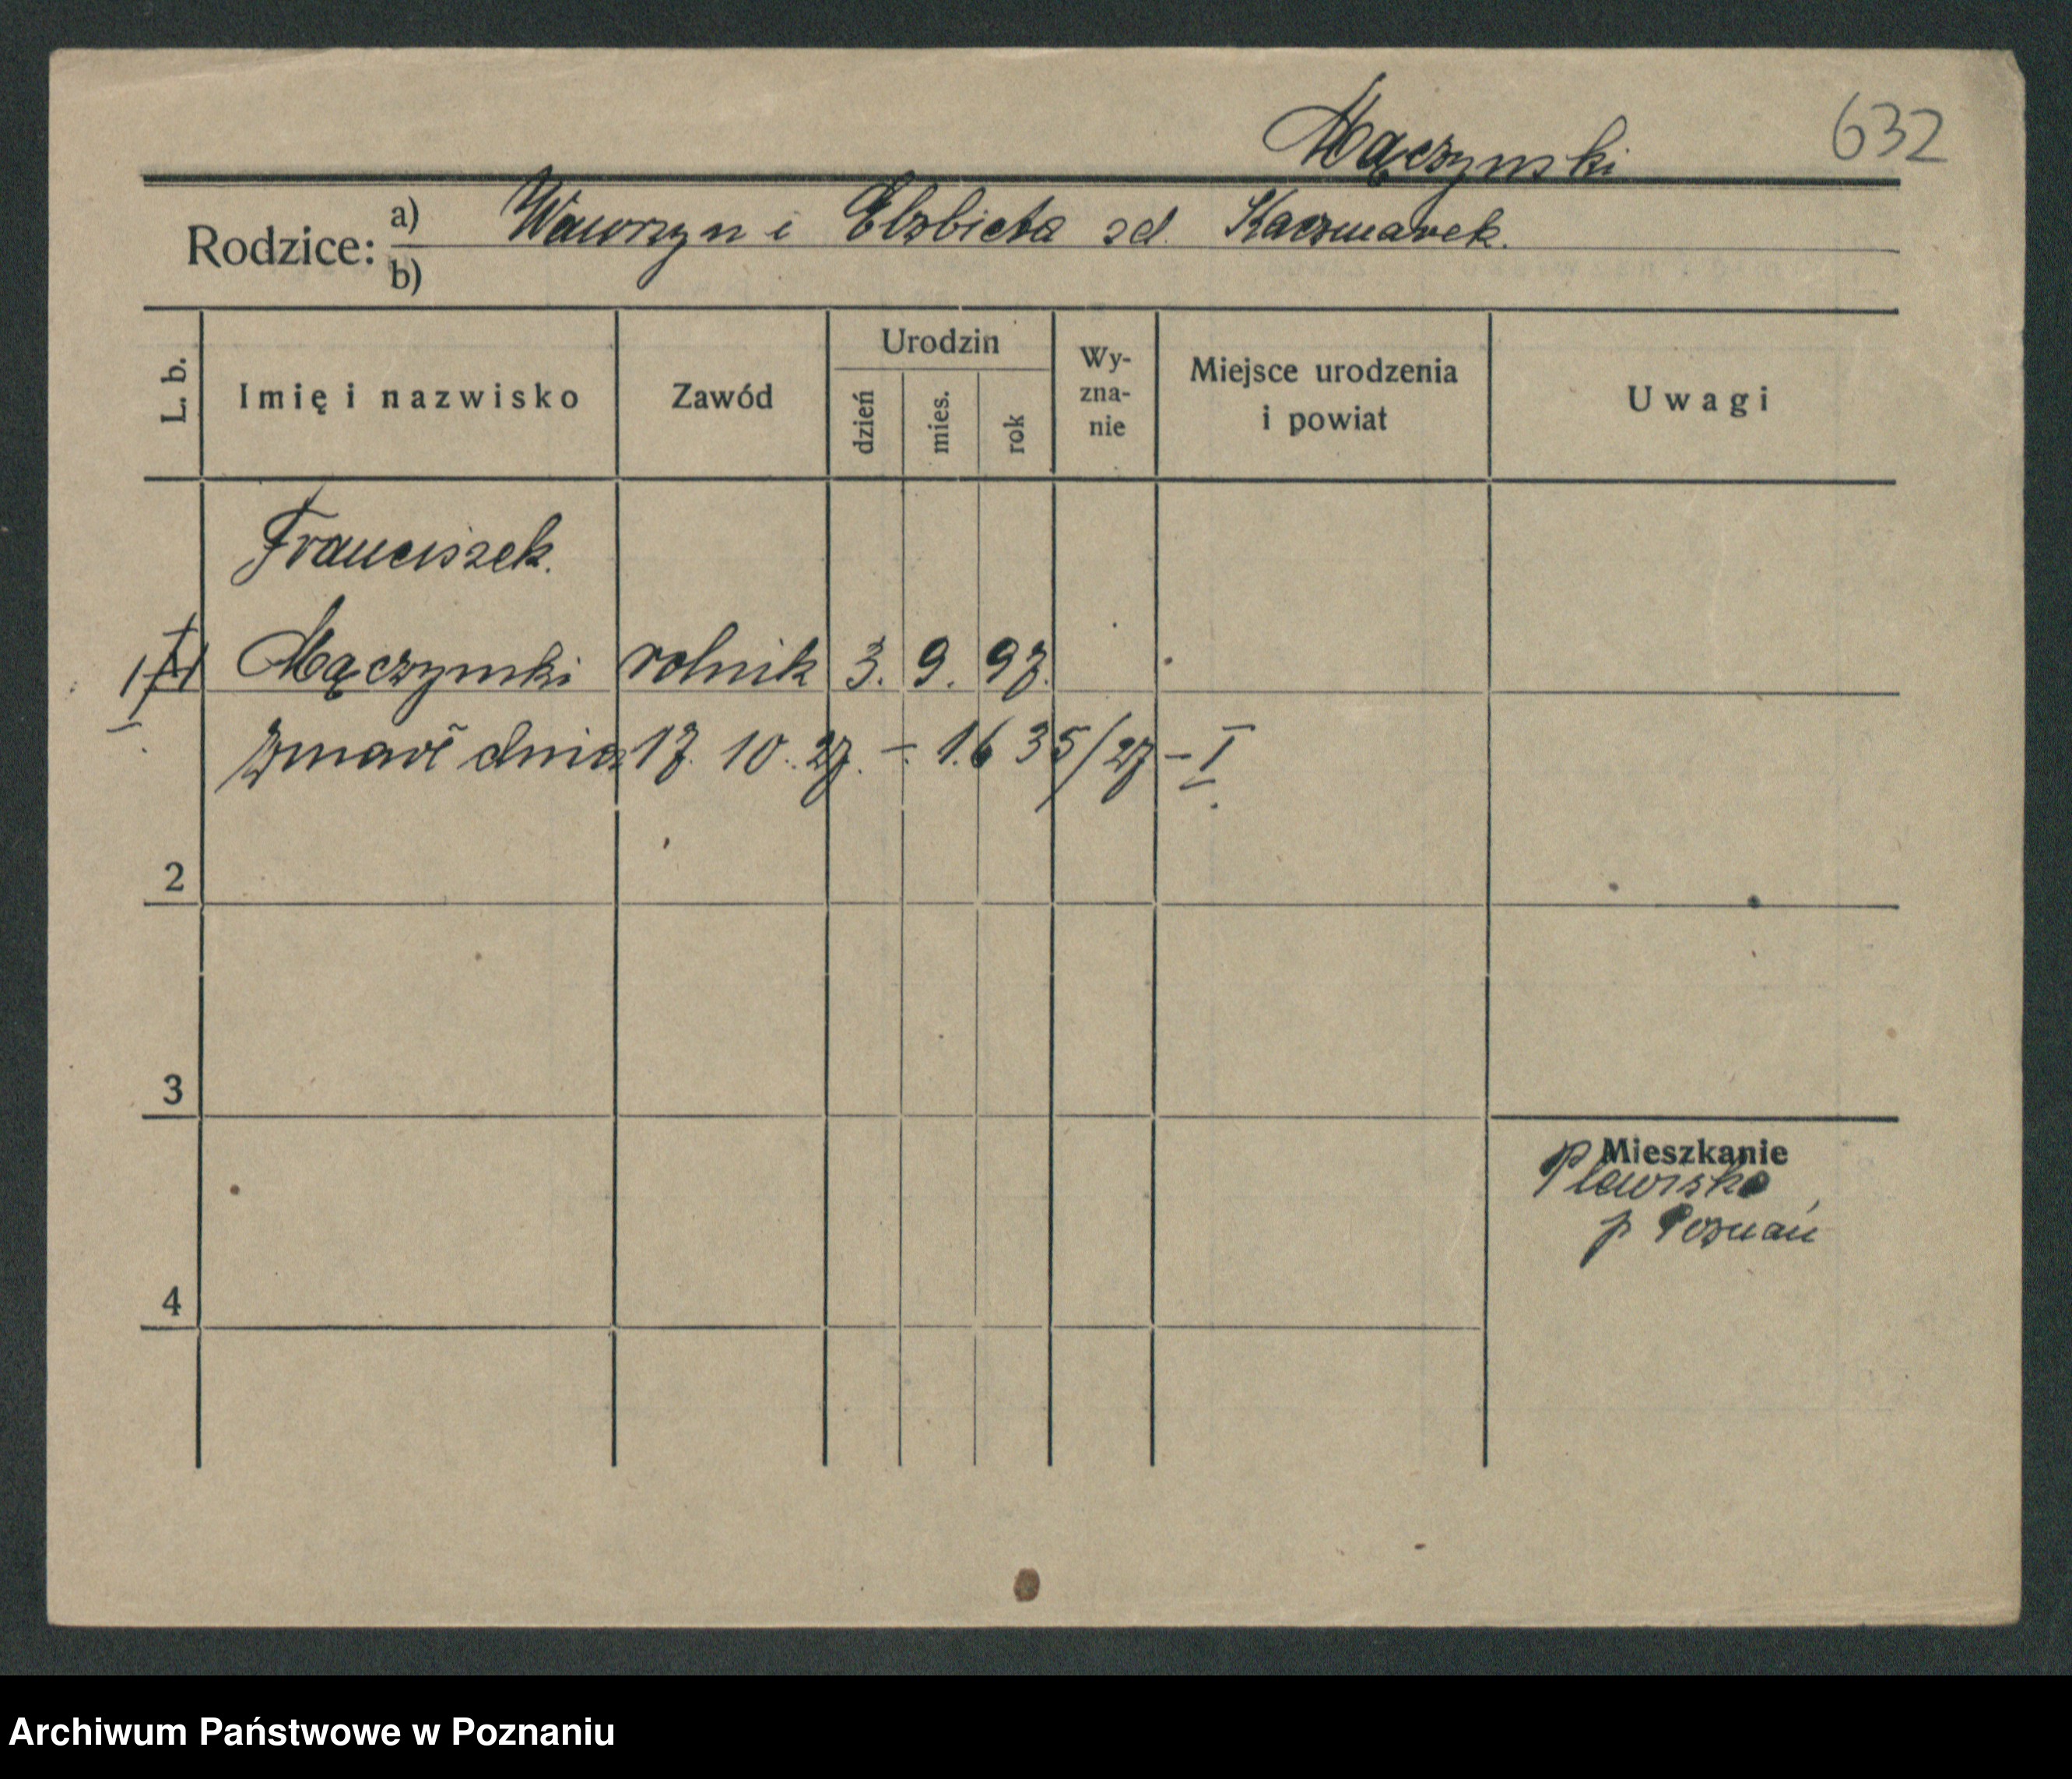 632
Mączynski
Rodzice: a) Wawrzyn i Elzbieta zd. Kaczmarek.
b)
L. b. Imię i nazwisko Zawód Urodzin dzień mies. rok Wy-zna-nie Miejsce urodzenia i powiat Uwagi
Franciszek.
1 Mączynski rolnik 3. 9. 97.
Zmarł dnia 17. 10. 27. – 1635/27 – I.
2
3
Mieszkanie
Plewiska
p Poznań
4
Archiwum Państwowe w Poznaniu